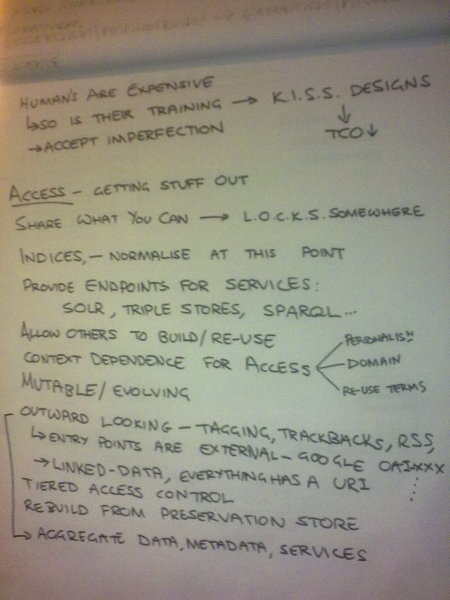 HUMAN'S ARE EXPENSIVE
↳SO IS THEIR TRAINING → K.I.S.S. DESIGNS
→ACCEPT IMPERFECTION
↓
TCO↓
ACCESS – GETTING STUFF OUT
SHARE WHAT YOU CAN → L.O.C.K.S. SOMEWHERE
INDICES, – NORMALISE AT THIS POINT
PROVIDE ENDPOINTS FOR SERVICES:
SOLR, TRIPLE STORES, SPARQL...
ALLOW OTHERS TO BUILD/RE-USE
CONTEXT DEPENDENCE FOR ACCESS
PERSONALISN
DOMAIN
RE-USE TERMS
MUTABLE/EVOLVING
OUTWARD LOOKING – TAGGING, TRACKBACKS, RSS,
↳ENTRY POINTS ARE EXTERNAL – GOOGLE OAI-XXX
→LINKED-DATA, EVERYTHING HAS A URI
TIERED ACCESS CONTROL
REBUILD FROM PRESERVATION STORE
→ AGGREGATE DATA, METADATA, SERVICES